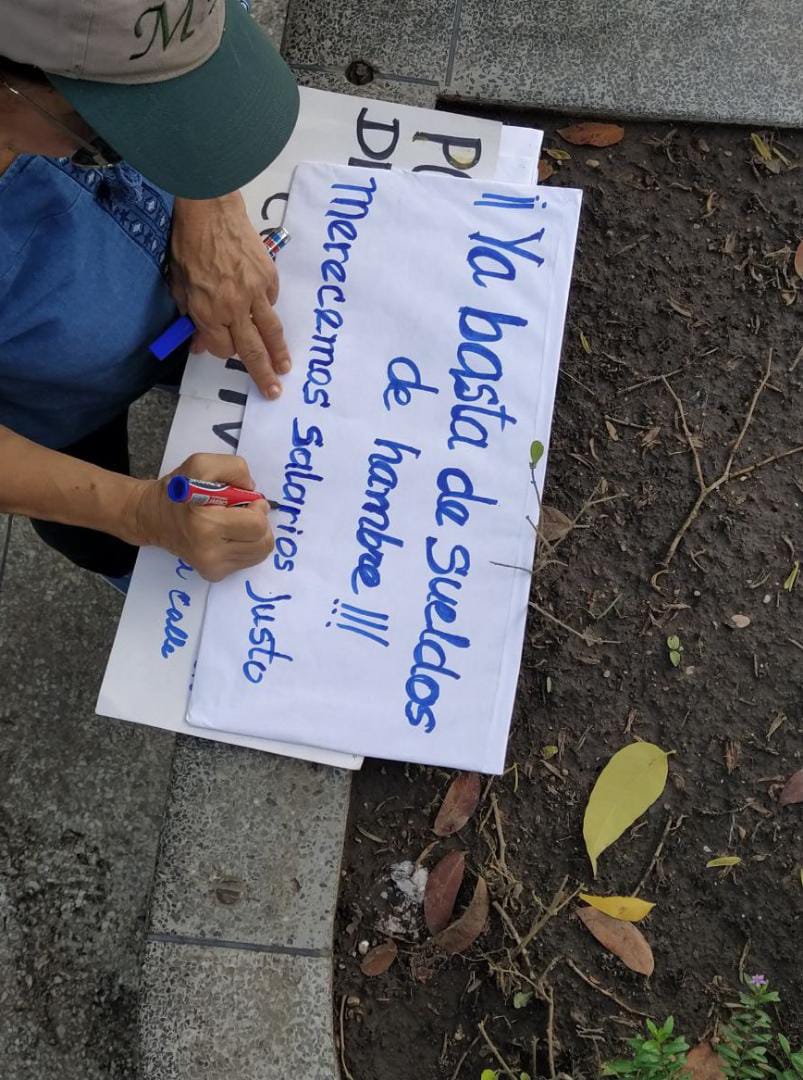 ¡¡ Ya basta de sueldos
de hambre !!!
Merecemos Salarios Justo
calle
M